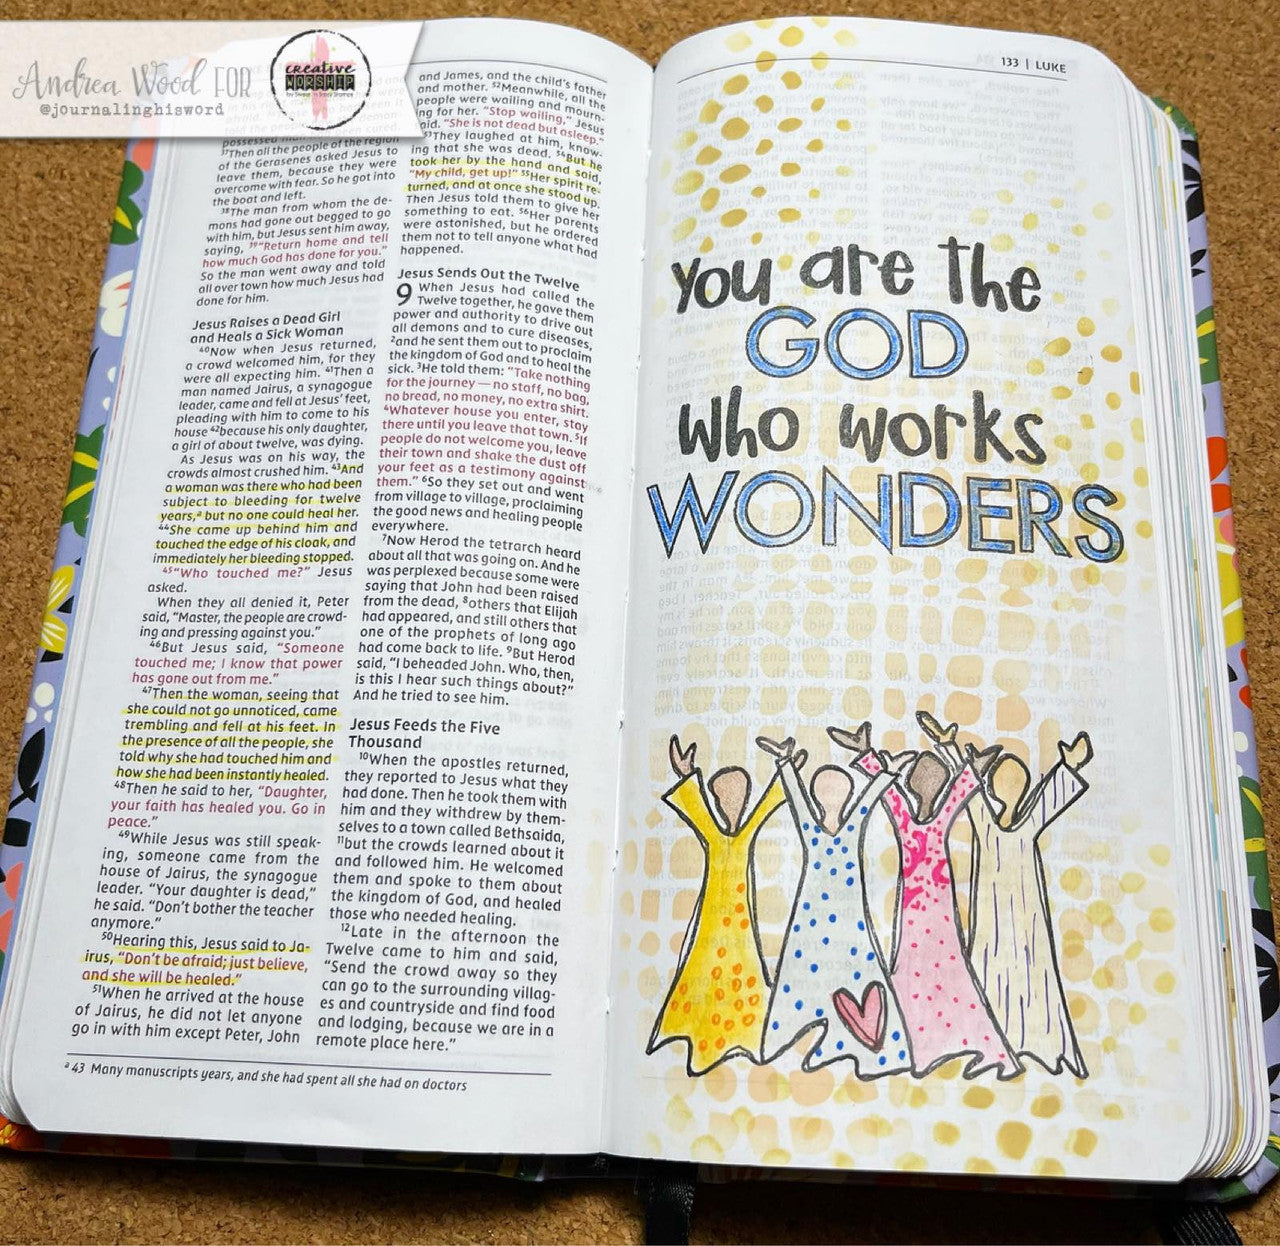 Andrea Wood FOR
@journalinghisword
creative
WORSHIP
37Then all the people of the region
of the Gerasenes asked Jesus to
leave them, because they were
overcome with fear. So he got into
the boat and left.
38The man from whom the de-
mons had gone out begged to go
with him, but Jesus sent him away,
saying, 39“Return home and tell
how much God has done for you.”
So the man went away and told
all over town how much Jesus had
done for him.
Jesus Raises a Dead Girl
and Heals a Sick Woman
40Now when Jesus returned,
a crowd welcomed him, for they
were all expecting him. 41Then a
man named Jairus, a synagogue
leader, came and fell at Jesus’ feet,
pleading with him to come to his
house 42because his only daughter,
a girl of about twelve, was dying.
As Jesus was on his way, the
crowds almost crushed him. 43And
a woman was there who had been
subject to bleeding for twelve
years,a but no one could heal her.
44She came up behind him and
touched the edge of his cloak, and
immediately her bleeding stopped.
45“Who touched me?” Jesus
asked.
When they all denied it, Peter
said, “Master, the people are crowd-
ing and pressing against you.”
46But Jesus said, “Someone
touched me; I know that power
has gone out from me.”
47Then the woman, seeing that
she could not go unnoticed, came
trembling and fell at his feet. In
the presence of all the people, she
told why she had touched him and
how she had been instantly healed.
48Then he said to her, “Daughter,
your faith has healed you. Go in
peace.”
49While Jesus was still speak-
ing, someone came from the
house of Jairus, the synagogue
leader. “Your daughter is dead,”
he said. “Don’t bother the teacher
anymore.”
50Hearing this, Jesus said to Ja-
irus, “Don’t be afraid; just believe,
and she will be healed.”
51When he arrived at the house
of Jairus, he did not let anyone
go in with him except Peter, John
and James, and the child’s father
and mother. 52Meanwhile, all the
people were wailing and mourn-
ing for her. “Stop wailing,” Jesus
said. “She is not dead but asleep.”
53They laughed at him, know-
ing that she was dead. 54But he
took her by the hand and said,
“My child, get up!” 55Her spirit re-
turned, and at once she stood up.
Then Jesus told them to give her
something to eat. 56Her parents
were astonished, but he ordered
them not to tell anyone what had
happened.
Jesus Sends Out the Twelve
9 When Jesus had called the
Twelve together, he gave them
power and authority to drive out
all demons and to cure diseases,
2and he sent them out to proclaim
the kingdom of God and to heal the
sick. 3He told them: “Take nothing
for the journey — no staff, no bag,
no bread, no money, no extra shirt.
4Whatever house you enter, stay
there until you leave that town. 5If
people do not welcome you, leave
their town and shake the dust off
your feet as a testimony against
them.” 6So they set out and went
from village to village, proclaiming
the good news and healing people
everywhere.
7Now Herod the tetrarch heard
about all that was going on. And he
was perplexed because some were
saying that John had been raised
from the dead, 8others that Elijah
had appeared, and still others that
one of the prophets of long ago
had come back to life. 9But Herod
said, “I beheaded John. Who, then,
is this I hear such things about?”
And he tried to see him.
Jesus Feeds the Five
Thousand
10When the apostles returned,
they reported to Jesus what they
had done. Then he took them with
him and they withdrew by them-
selves to a town called Bethsaida,
11but the crowds learned about it
and followed him. He welcomed
them and spoke to them about
the kingdom of God, and healed
those who needed healing.
12Late in the afternoon the
Twelve came to him and said,
“Send the crowd away so they
can go to the surrounding villag-
es and countryside and find food
and lodging, because we are in a
remote place here.”
a 43 Many manuscripts years, and she had spent all she had on doctors
133 | LUKE
you are the
GOD
who works
WONDERS